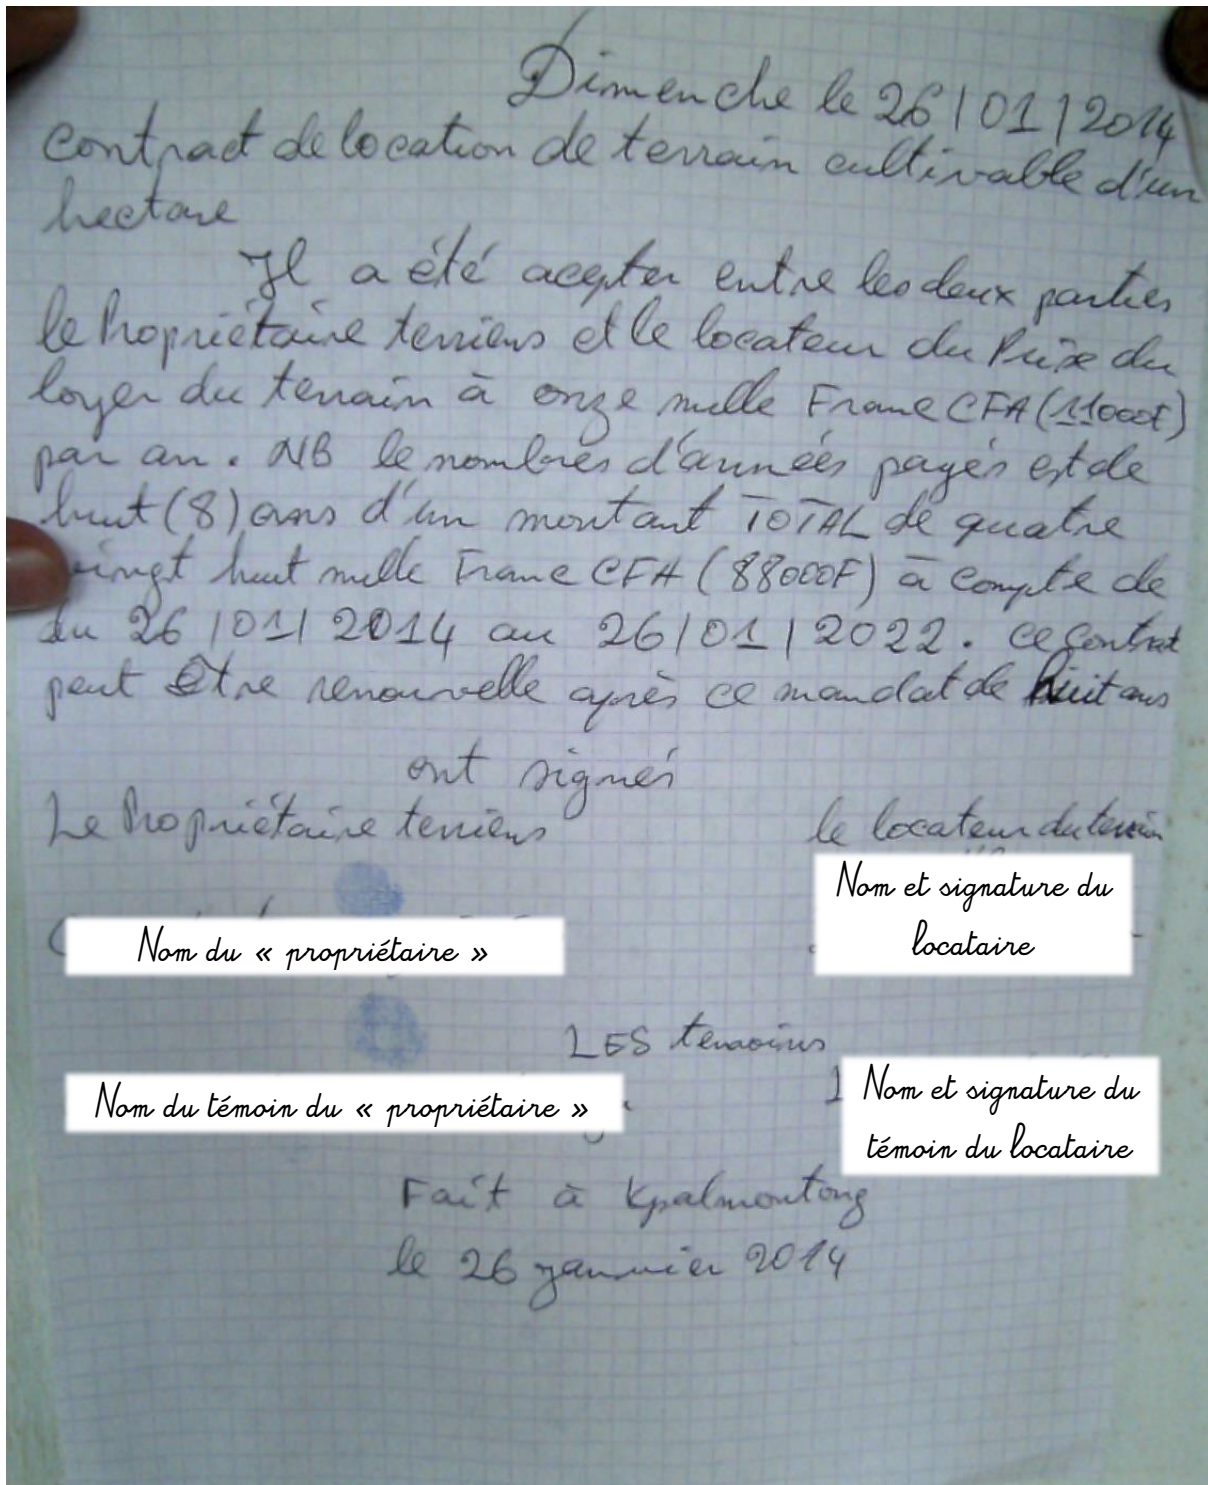 Dimenche le 26/01/2014
contract de location de terrain cultivable d'un
hectare
Il a été acepter entre les deux parties
le Propriétaire terriens et le locateur du Prix du
loyer du terrain à onze mille Franc CFA (11000F)
par an. NB le nombres d'années payés est de
huit (8) ans d'un montant TOTAL de quatre
vingt huit mille Franc CFA (88000F) à compte de
du 26/01/2014 au 26/01/2022. ce contrat
peut être renouvelle après ce mandat de huit ans
ont signés
Le Propriétaire terriens
le locateur du terrain
Nom du « propriétaire »
Nom et signature du
locataire
LES temoins
Nom du témoin du « propriétaire »
Nom et signature du
témoin du locataire
Fait à Kpalmontong
le 26 janvier 2014